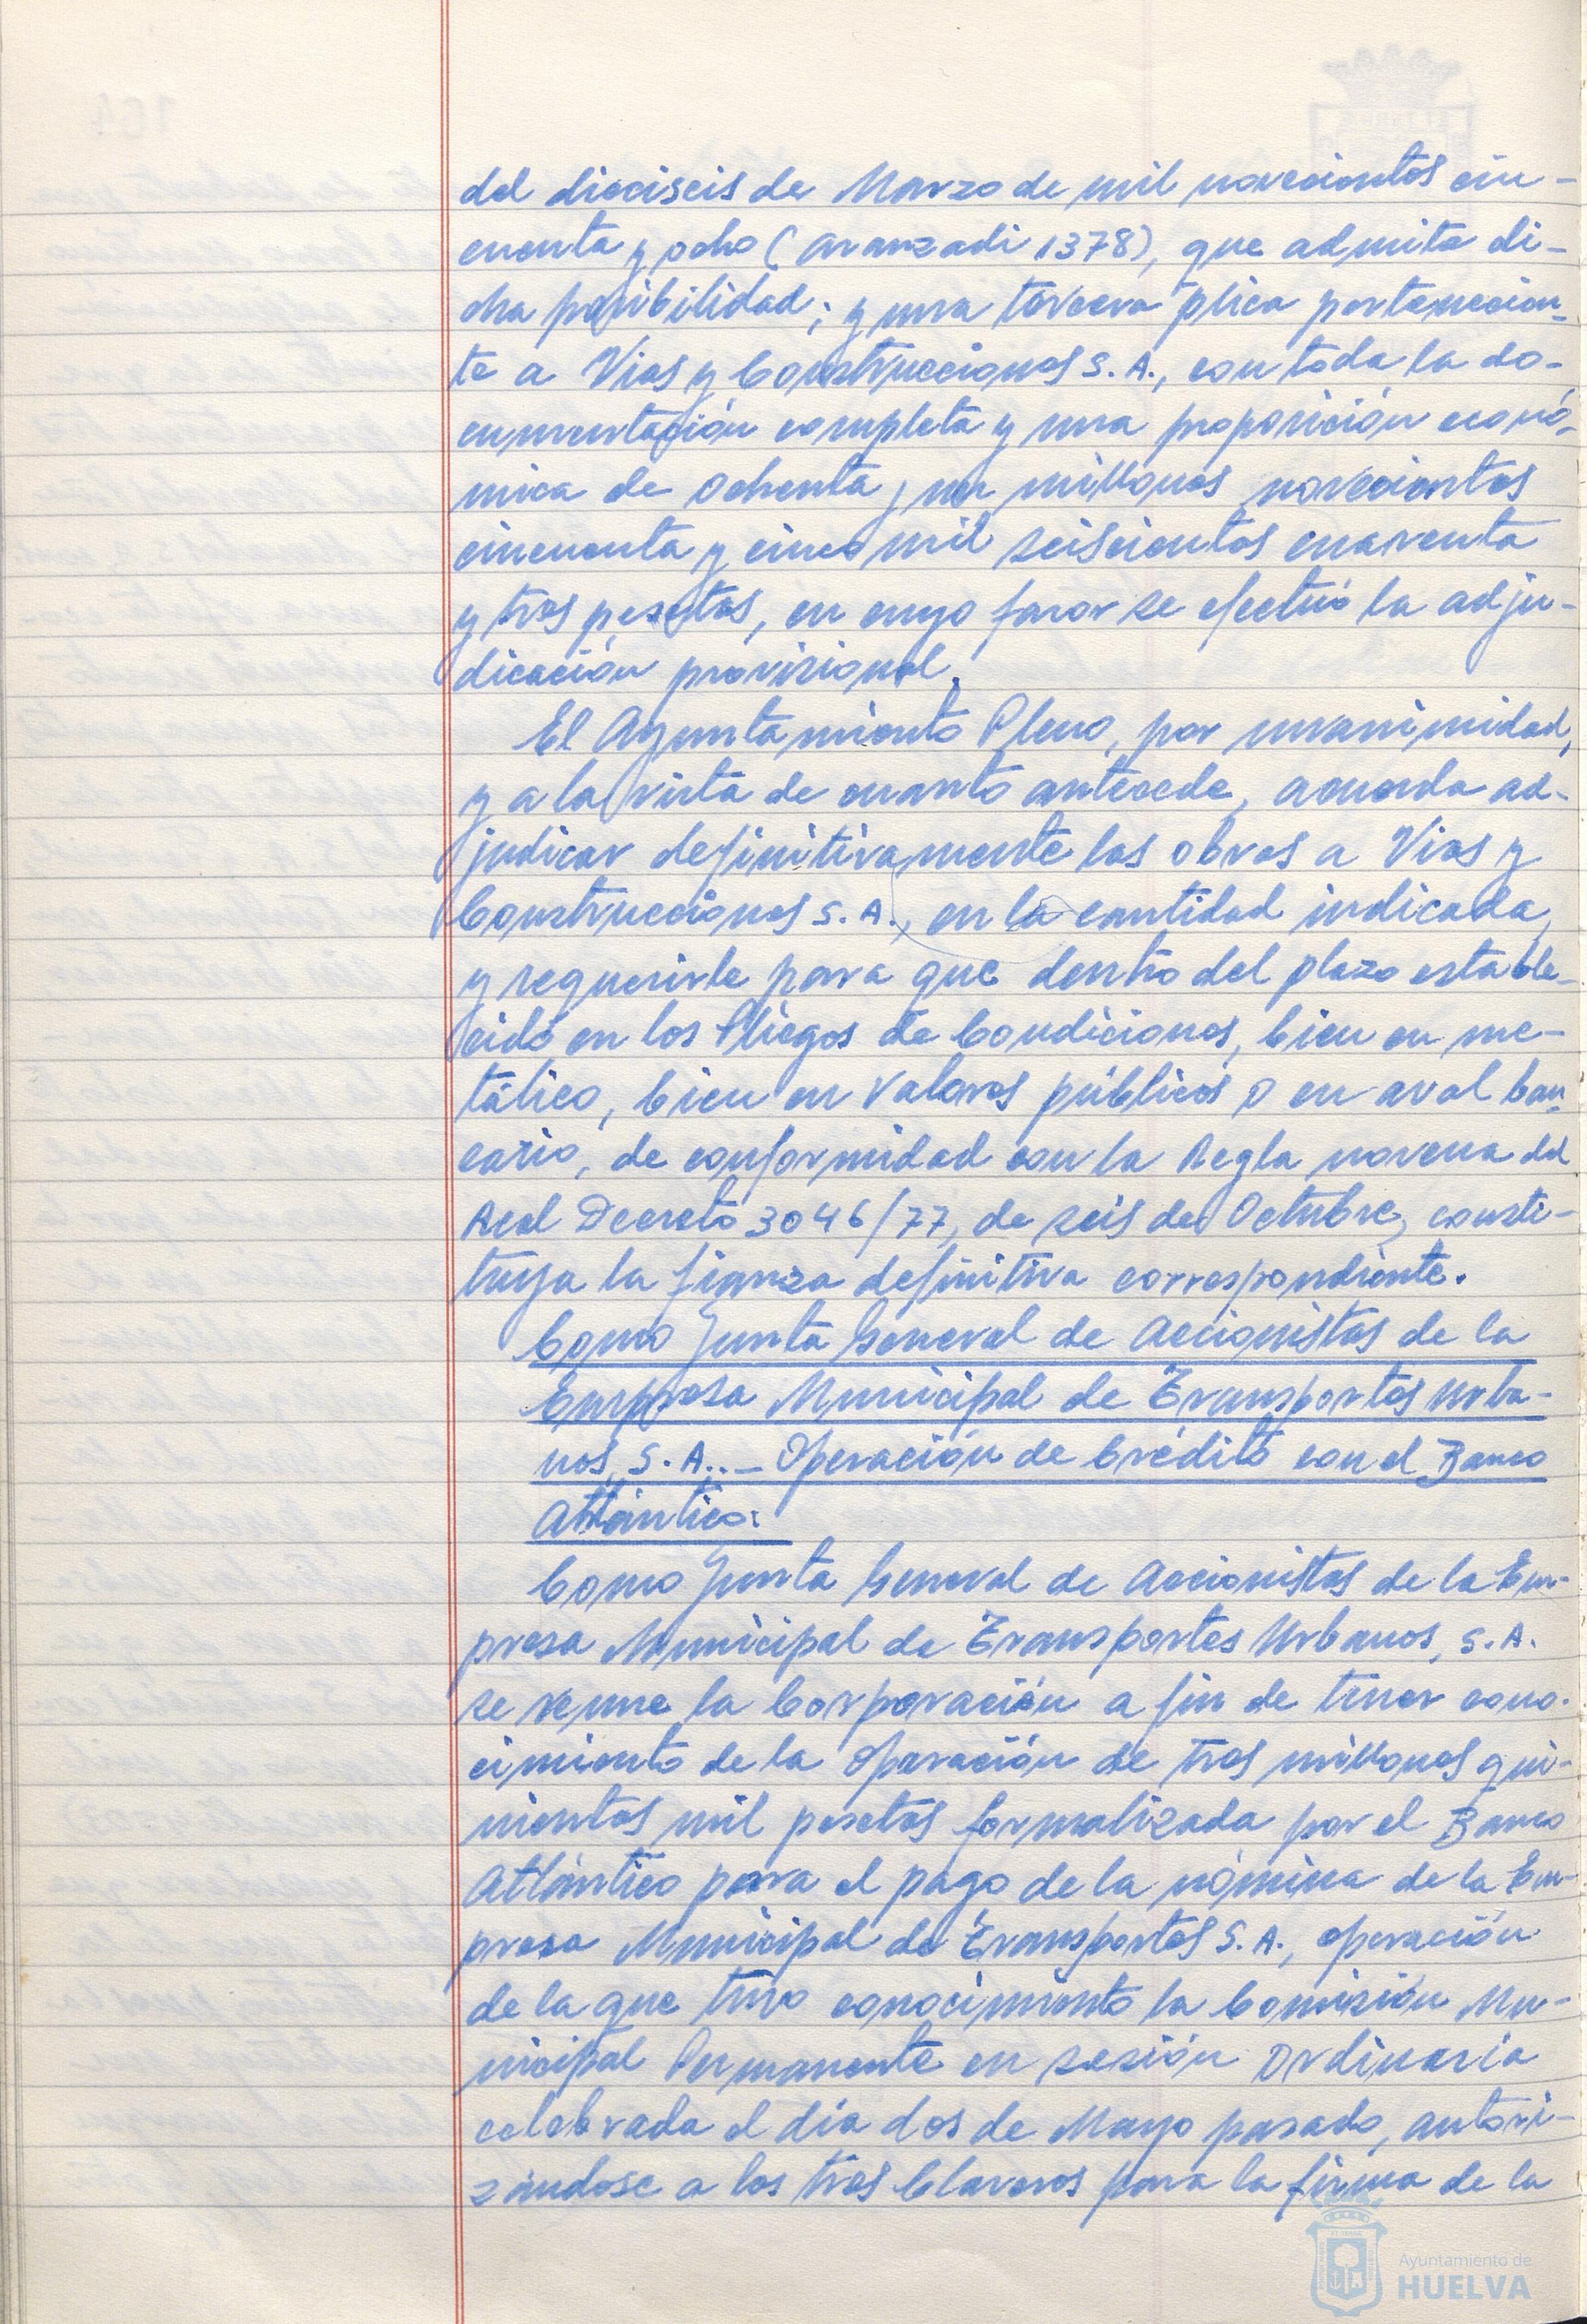 del dieciseis de Marzo de mil novecientos cin-
cuenta y ocho (Aranzadi 1378), que admite di-
cha posibilidad; y una tercera plica pertenecien-
te a Vias y Construcciones S.A., con toda la do-
cumentación completa y una proposición econó-
mica de ochenta y un millones novecientos
cincuenta y cinco mil seiscientos cuarenta
y tres pesetas, en cuyo favor se efectuó la adju-
dicación provisional.
El Ayuntamiento Pleno, por unanimidad,
y a la vista de cuanto antecede, acuerda ad-
judicar definitivamente las obras a Vias y
Construcciones S.A., en la cantidad indicada,
y requerirle para que dentro del plazo estable-
cido en los Pliegos de Condiciones, bien en me-
tálico, bien en Valores públicos o en aval ban-
cario, de conformidad con la Regla novena del
Real Decreto 3046/77, de seis de Octubre, consti-
tuya la fianza definitiva correspondiente.
Como Junta General de Accionistas de la
Empresa Municipal de Transportes Urba-
nos, S.A..- Operación de Crédito con el Banco
Atlántico:
Como Junta General de Accionistas de la Em-
presa Municipal de Transportes Urbanos, S.A.
se reune la Corporación a fin de tener cono-
cimiento de la Operación de tres millones qui-
nientas mil pesetas formalizada por el Banco
Atlántico para el pago de la nómina de la Em-
presa Municipal de Transportes S.A., operación
de la que tuvo conocimiento la Comisión Mu-
nicipal Permanente en sesión Ordinaria
celebrada el día dos de Mayo pasado, autori-
zándose a los tres Claveros para la firma de la
Ayuntamiento de
HUELVA